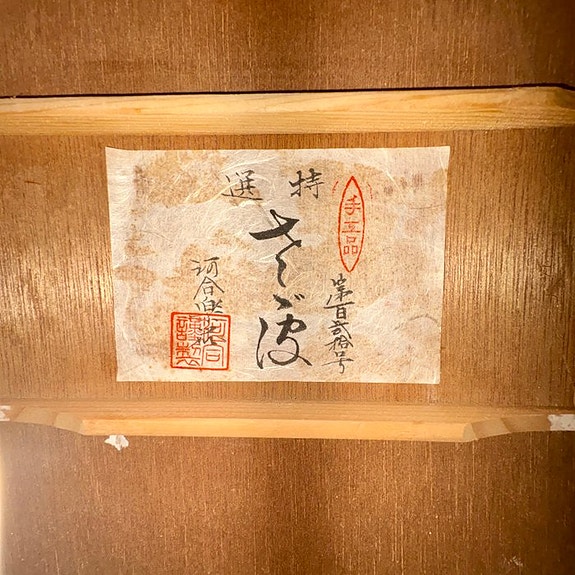 特選
手工品
第百弐拾号
さゞ波
河合楽器